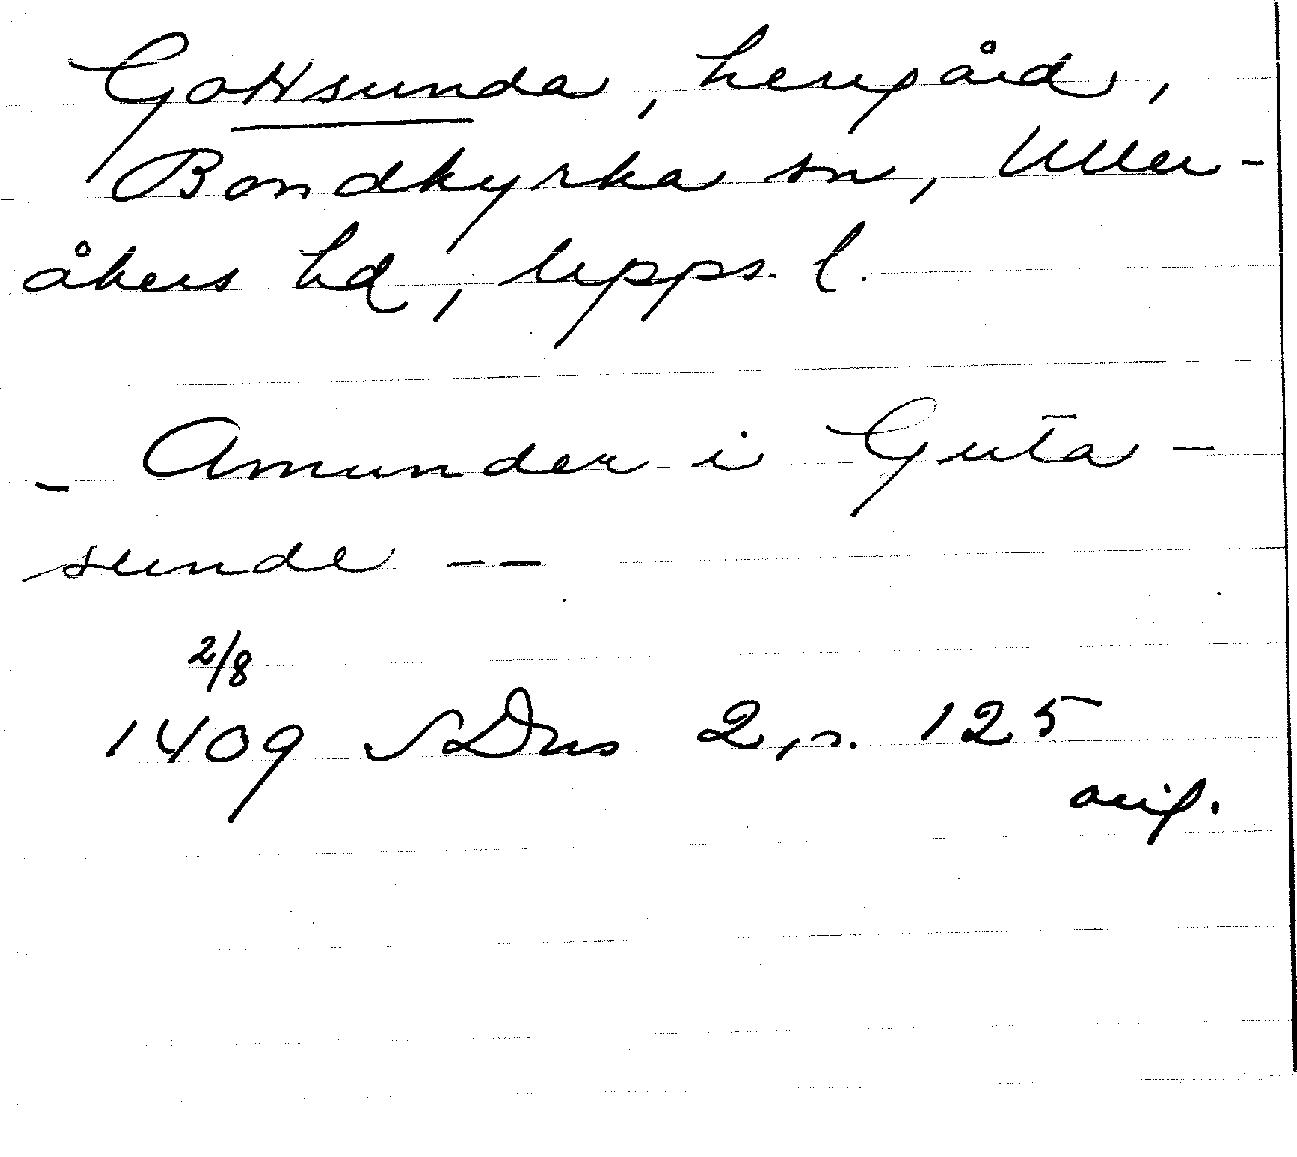 Gottsunda, herrgård,
Bondkyrka sn, Uller-
åkers hd, Upps. l.
- Amunder i Guta-
sunde --
2/8
1409 SDns 2, s. 125
orig.